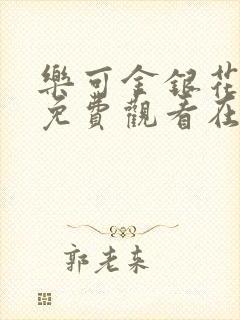 樂可金銀花
免費觀看在
郭老来